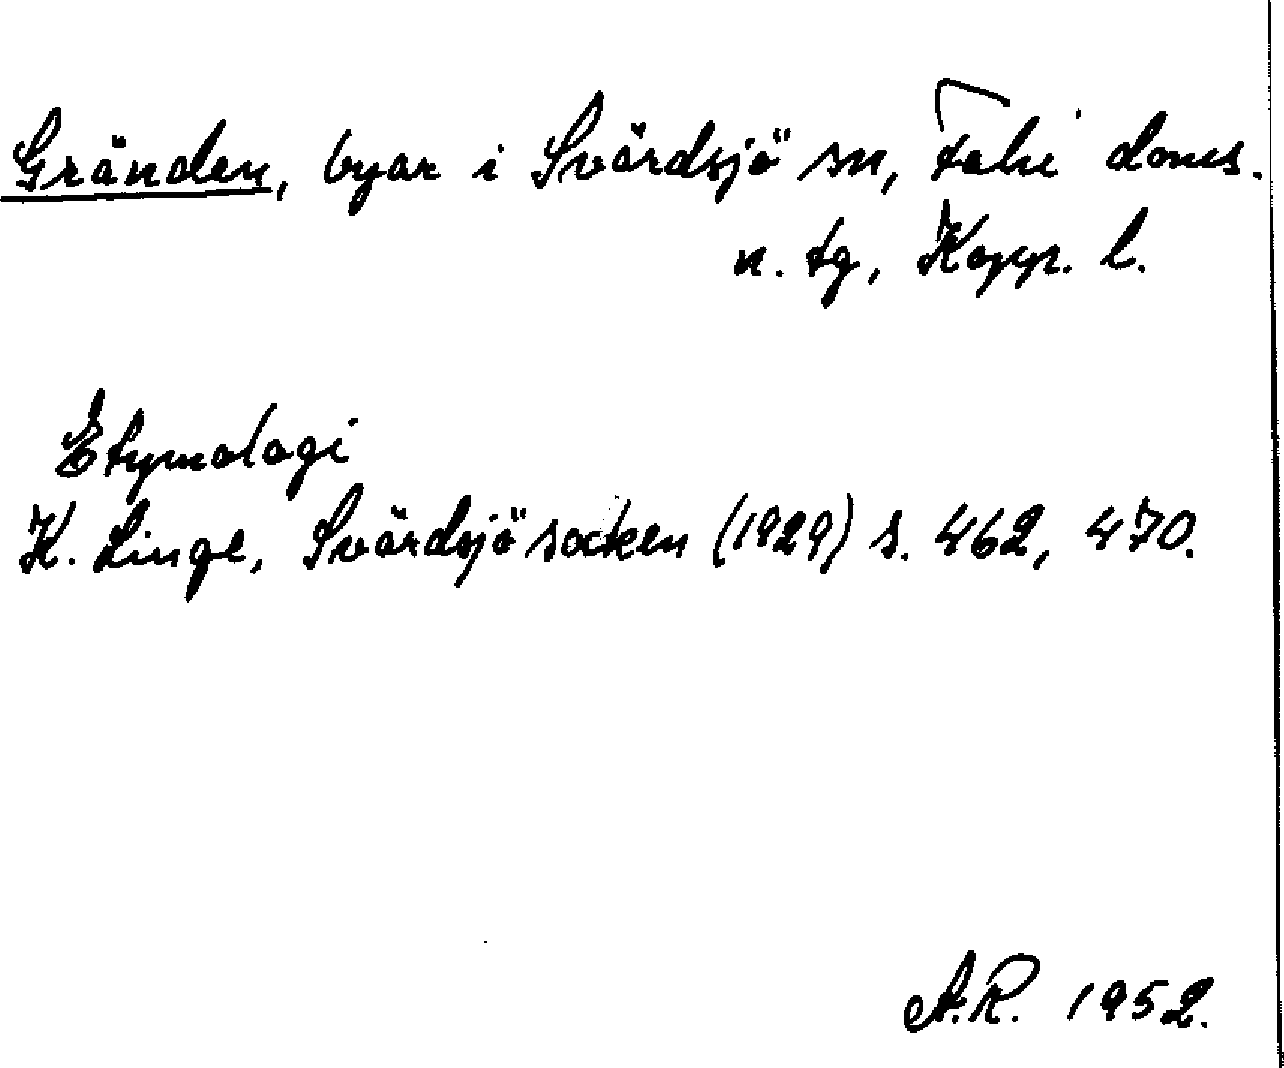 Gränden, byar i Svärdsjö sn, Falu doms.
n. tg, Kopp. l.
Etymologi
K. Linge, Svärdsjö socken (1929) s. 462, 470.
A.R. 1952.